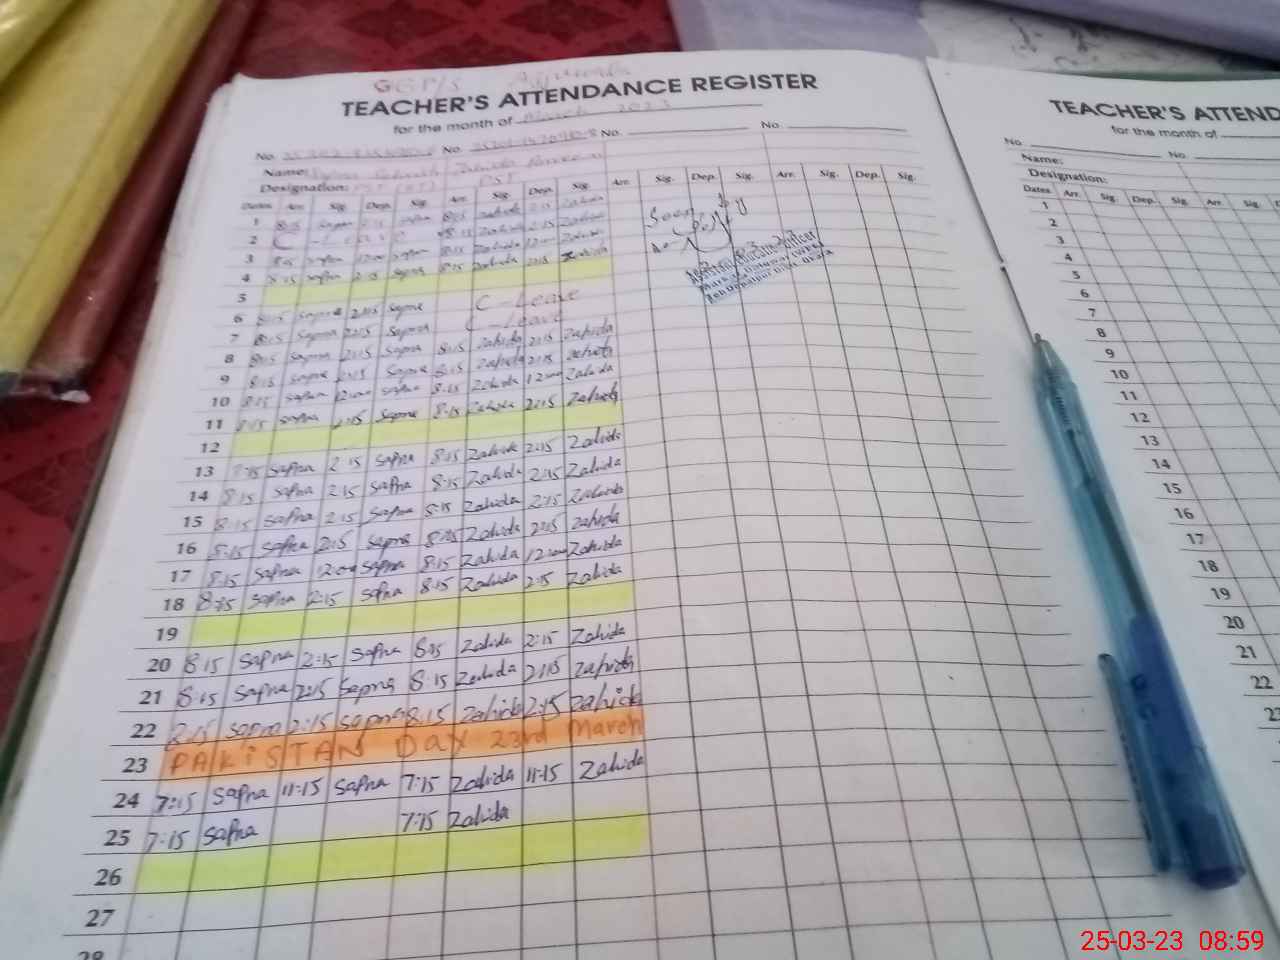 GGP/S
TEACHER'S ATTENDANCE REGISTER
for the month of March 2023
No. No. No. No.
Name: Zahida Parveen
Designation: PST PST
Dates Arr. Sig. Dep. Sig. Arr. Sig. Dep. Sig. Arr. Sig. Dep. Sig. Arr. Sig. Dep. Sig.
1 8:15 Sapna 2:15 Sapna 8:15 Zahida 2:15 Zahida
2 C - Leave 8:15 Zahida 2:15 Zahida
3 8:15 Sapna 12:00 Sapna 8:15 Zahida 12:00 Zahida
4 8:15 Sapna 2:15 Sapna 8:15 Zahida 2:15 Zahida
5
6 8:15 Sapna 2:15 Sapna C - Leave
7 8:15 Sapna 2:15 Sapna C - Leave
8 8:15 Sapna 2:15 Sapna 8:15 Zahida 2:15 Zahida
9 8:15 Sapna 2:15 Sapna 8:15 Zahida 2:15 Zahida
10 8:15 Sapna 12:00 Sapna 8:15 Zahida 12:00 Zahida
11 8:15 Sapna 2:15 Sapna 8:15 Zahida 2:15 Zahida
12
13 8:15 Sapna 2:15 Sapna 8:15 Zahida 2:15 Zahida
14 8:15 Sapna 2:15 Sapna 8:15 Zahida 2:15 Zahida
15 8:15 Sapna 2:15 Sapna 8:15 Zahida 2:15 Zahida
16 8:15 Sapna 2:15 Sapna 8:15 Zahida 2:15 Zahida
17 8:15 Sapna 12:00 Sapna 8:15 Zahida 12:00 Zahida
18 8:15 Sapna 2:15 Sapna 8:15 Zahida 2:15 Zahida
19
20 8:15 Sapna 2:15 Sapna 8:15 Zahida 2:15 Zahida
21 8:15 Sapna 2:15 Sapna 8:15 Zahida 2:15 Zahida
22 8:15 Sapna 2:15 Sapna 8:15 Zahida 2:15 Zahida
23 PAKISTAN DAY 23rd March
24 7:15 Sapna 11:15 Sapna 7:15 Zahida 11:15 Zahida
25 7:15 Sapna 7:15 Zahida
26
27
28
Seen by
Assistant Education Officer
TEACHER'S ATTEND
for the month of
No. No.
Name:
Designation:
Dates Arr. Sig. Dep. Sig. Arr. Sig.
1
2
3
4
5
6
7
8
9
10
11
12
13
14
15
16
17
18
19
20
21
22
25-03-23 08:59